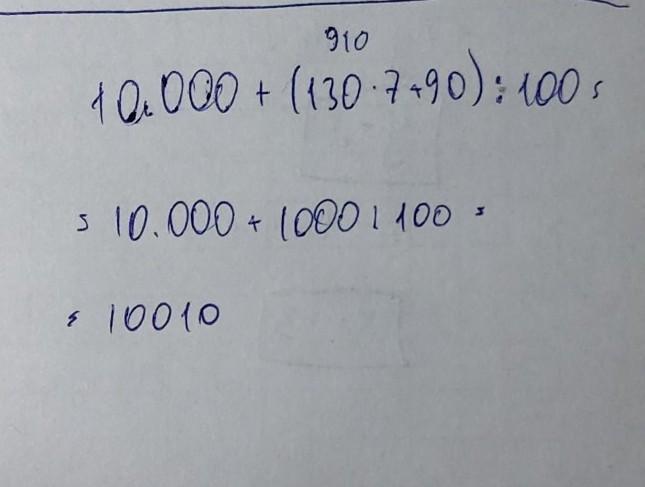 910
10.000 + (130·7+90):100 =
= 10.000 + 1000:100 =
= 10010